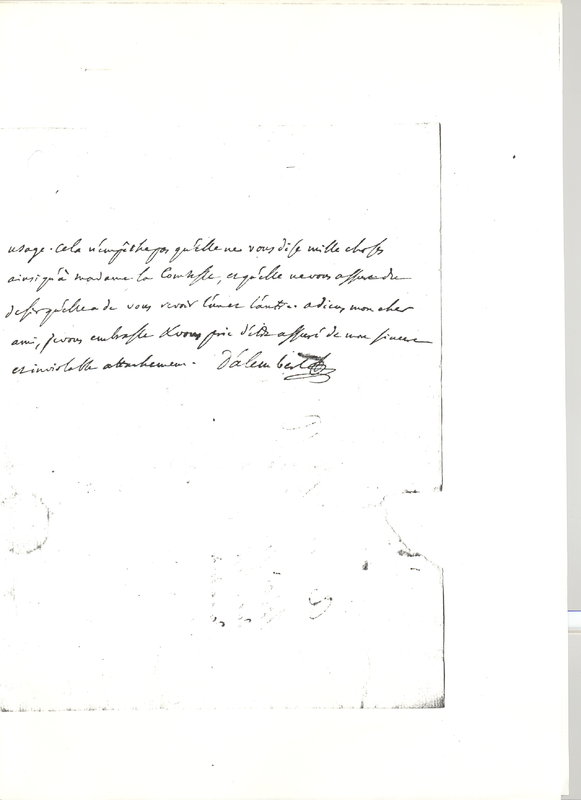 usage. cela n'empêche pas qu'elle ne vous dise mille choses
ainsi qu'à madame la Comtesse, et qu'elle ne vous assure du
desir qu'elle a de vous revoir l'un et l'autre. adieu mon cher
ami, je vous embrasse & vous prie d'être assuré de une sincere
et inviolable attachement. D'alembert